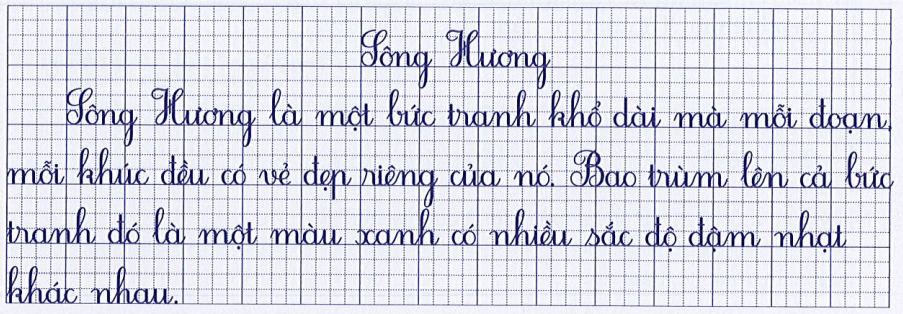 Sông Hương
Sông Hương là một bức tranh khổ dài mà mỗi đoạn,
mỗi khúc đều có vẻ đẹp riêng của nó. Bao trùm lên cả bức
tranh đó là một màu xanh có nhiều sắc độ đậm nhạt
khác nhau.